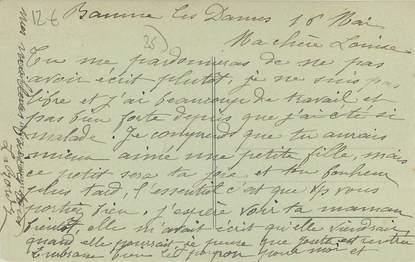 12 €
(25)
Baume les Dames 16 Mai
Ma chère Louise
Tu me pardonneras de ne pas
avoir écrit plutôt, je ne suis pas
libre et j'ai beaucoup de travail, et
pas bien forte depuis que j'ai été si
malade. Je comprends que tu aurais
mieux aimé une petite fille, mais
ce petit sera ta joie et ton bonheur
plus tard, l'essentiel c'est que vous
portiez bien. J'espère voir ta maman
bientôt, elle m'avait écrit qu'elle viendrait
quand elle pourrait, je pense que toute est rentrée
Embrasse bien pour moi et
mes meilleurs